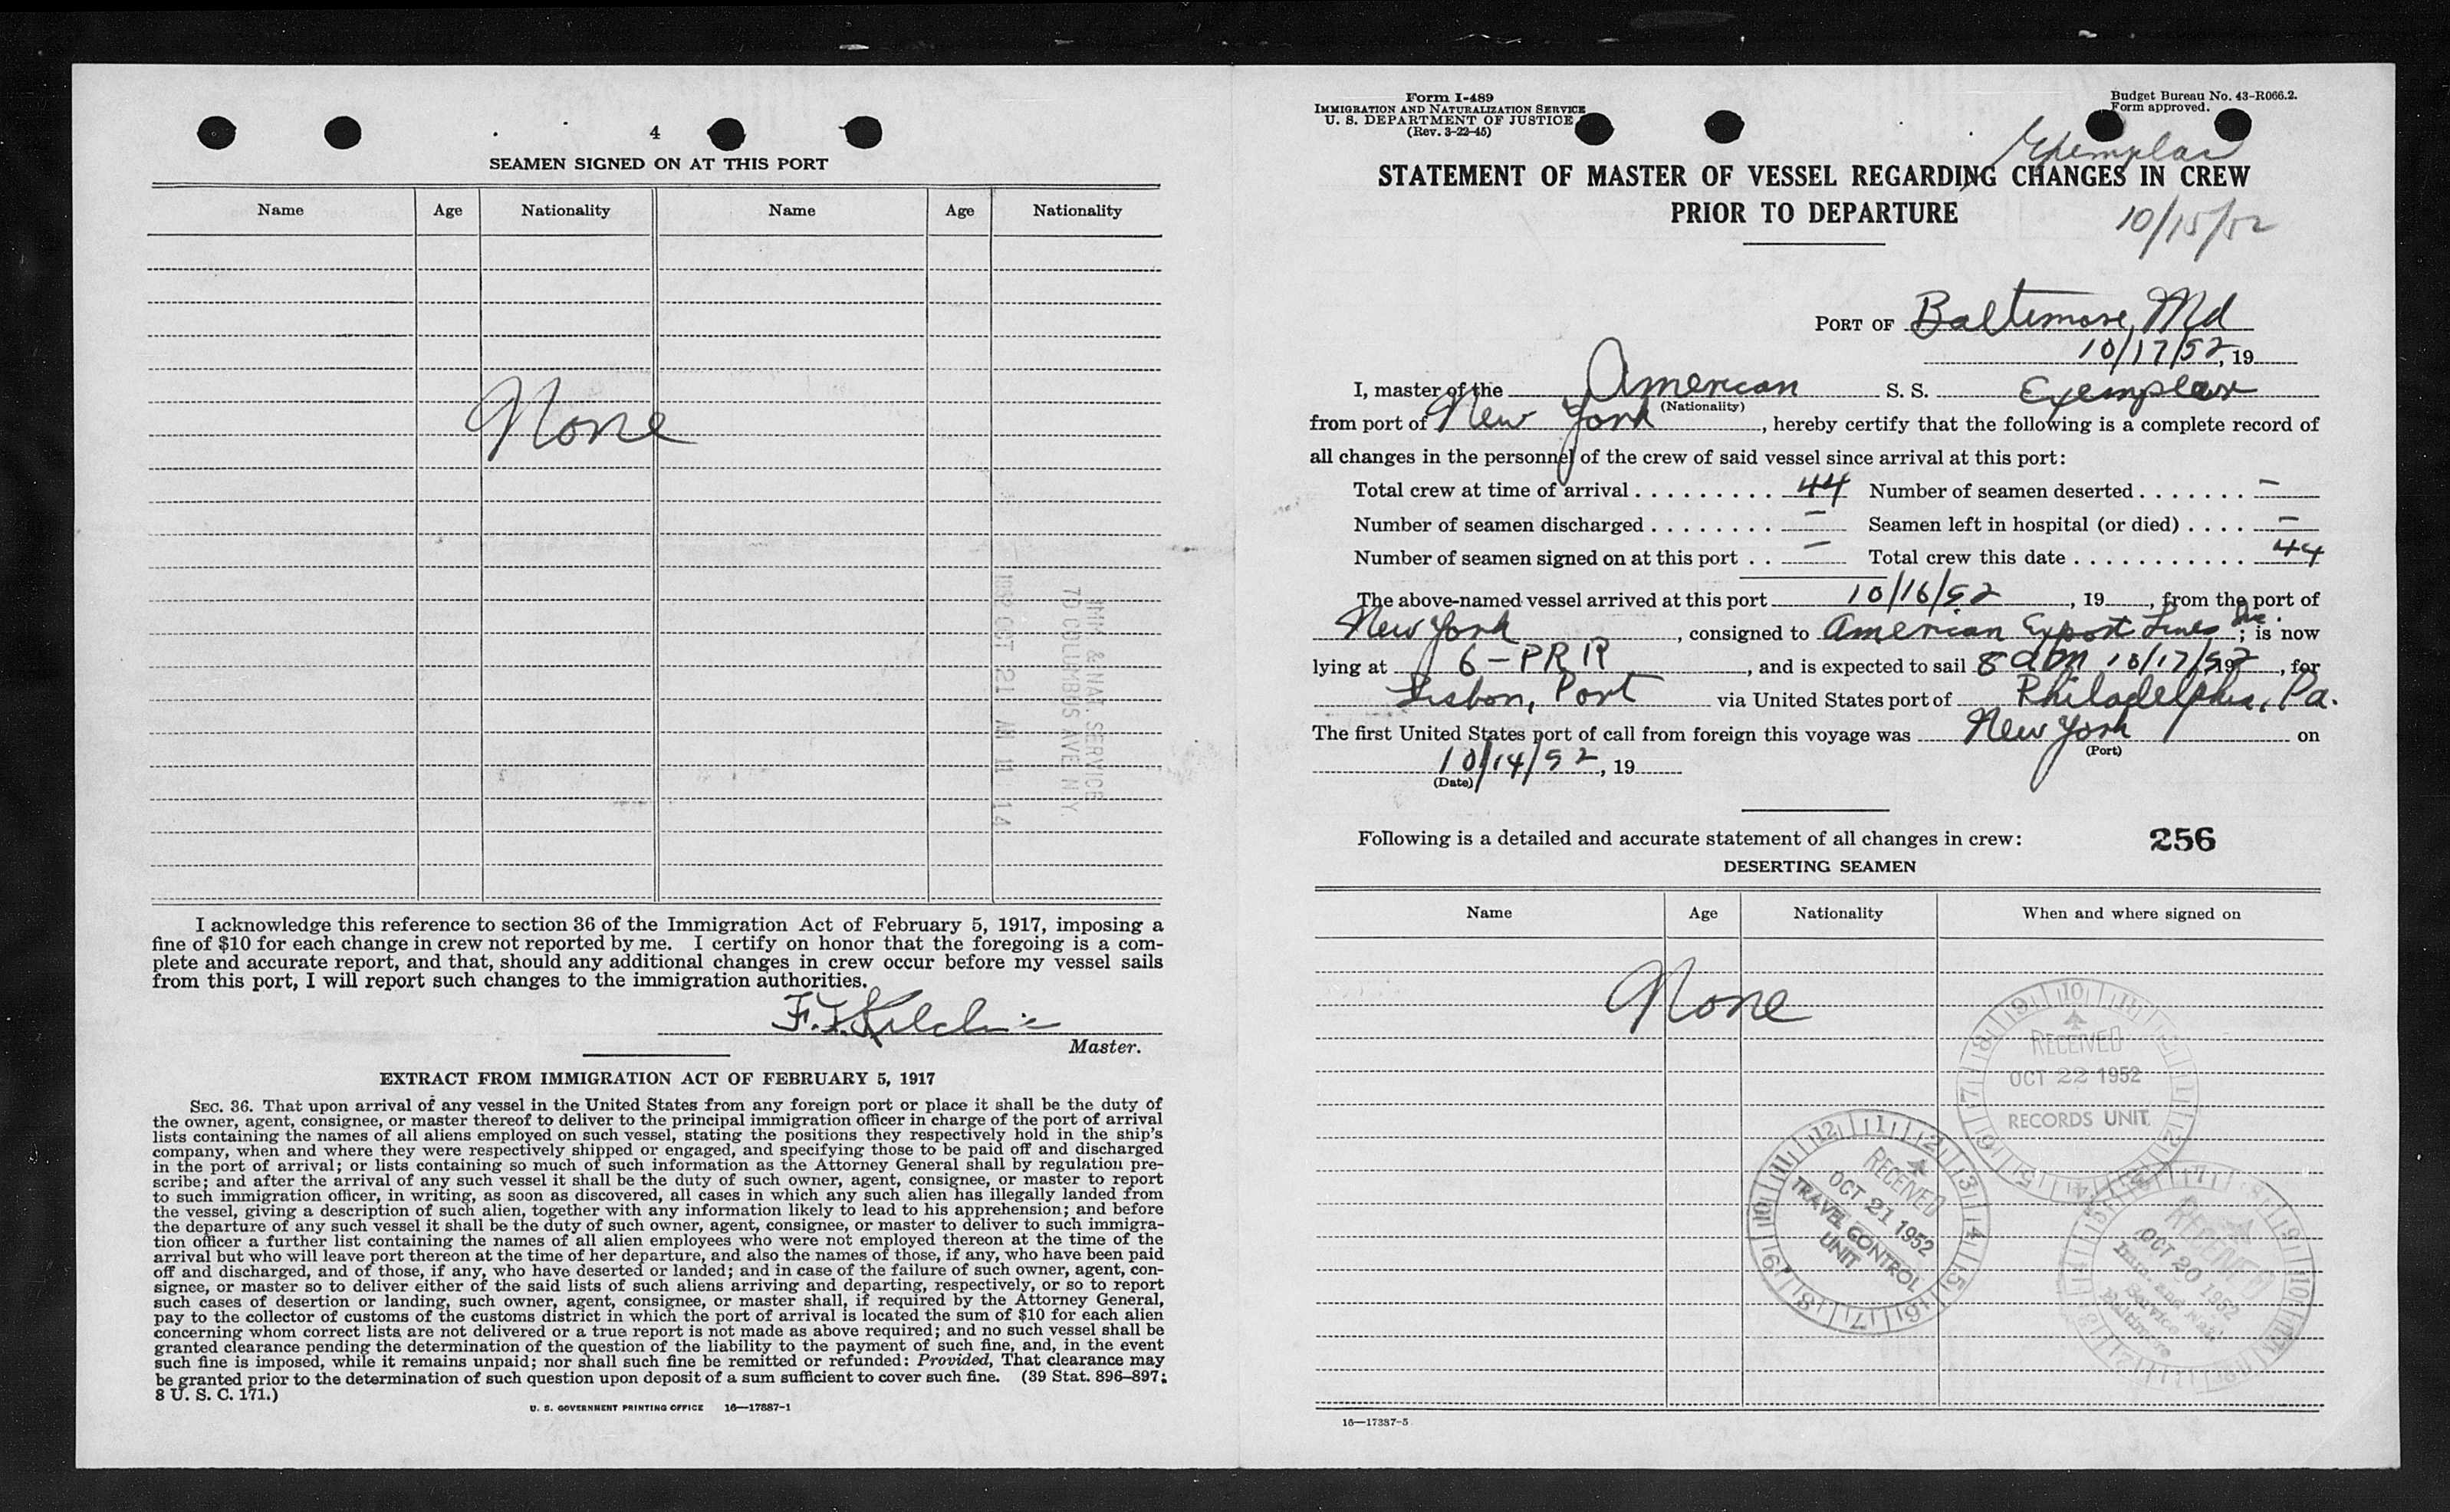 4
SEAMEN SIGNED ON AT THIS PORT
Name Age Nationality Name Age Nationality
None
IMM. & NAT. SERVICE
70 COLUMBUS AVE N.Y.
1952 OCT 21 AM 11 14
I acknowledge this reference to section 36 of the Immigration Act of February 5, 1917, imposing a
fine of $10 for each change in crew not reported by me. I certify on honor that the foregoing is a com-
plete and accurate report, and that, should any additional changes in crew occur before my vessel sails
from this port, I will report such changes to the immigration authorities.
Master.
EXTRACT FROM IMMIGRATION ACT OF FEBRUARY 5, 1917
SEC. 36. That upon arrival of any vessel in the United States from any foreign port or place it shall be the duty of
the owner, agent, consignee, or master thereof to deliver to the principal immigration officer in charge of the port of arrival
lists containing the names of all aliens employed on such vessel, stating the positions they respectively hold in the ship's
company, when and where they were respectively shipped or engaged, and specifying those to be paid off and discharged
in the port of arrival; or lists containing so much of such information as the Attorney General shall by regulation pre-
scribe; and after the arrival of any such vessel it shall be the duty of such owner, agent, consignee, or master to report
to such immigration officer, in writing, as soon as discovered, all cases in which any such alien has illegally landed from
the vessel, giving a description of such alien, together with any information likely to lead to his apprehension; and before
the departure of any such vessel it shall be the duty of such owner, agent, consignee, or master to deliver to such immigra-
tion officer a further list containing the names of all alien employees who were not employed thereon at the time of the
arrival but who will leave port thereon at the time of her departure, and also the names of those, if any, who have been paid
off and discharged, and of those, if any, who have deserted or landed; and in case of the failure of such owner, agent, con-
signee, or master so to deliver either of the said lists of such aliens arriving and departing, respectively, or so to report
such cases of desertion or landing, such owner, agent, consignee, or master shall, if required by the Attorney General,
pay to the collector of customs of the customs district in which the port of arrival is located the sum of $10 for each alien
concerning whom correct lists are not delivered or a true report is not made as above required; and no such vessel shall be
granted clearance pending the determination of the question of the liability to the payment of such fine, and, in the event
such fine is imposed, while it remains unpaid; nor shall such fine be remitted or refunded: Provided, That clearance may
be granted prior to the determination of such question upon deposit of a sum sufficient to cover such fine. (39 Stat. 896–897;
8 U. S. C. 171.)
U. S. GOVERNMENT PRINTING OFFICE 16—17887-1
Form I-489
IMMIGRATION AND NATURALIZATION SERVICE
U. S. DEPARTMENT OF JUSTICE
(Rev. 3-22-45)
Budget Bureau No. 43-R066.2.
Form approved.
Exemplar
STATEMENT OF MASTER OF VESSEL REGARDING CHANGES IN CREW
PRIOR TO DEPARTURE
10/15/52
PORT OF Baltimore, Md
10/17/52, 19
I, master of the American S. S. Exemplar
(Nationality)
from port of New York, hereby certify that the following is a complete record of
all changes in the personnel of the crew of said vessel since arrival at this port:
Total crew at time of arrival . . . . . . . . . 44 Number of seamen deserted . . . . . . . –
Number of seamen discharged . . . . . . . . – Seamen left in hospital (or died) . . . . –
Number of seamen signed on at this port . . – Total crew this date . . . . . . . . . . . 44
The above-named vessel arrived at this port 10/16/52, 19, from the port of
New York, consigned to American Export Lines Inc.; is now
lying at 6 – PRR, and is expected to sail 8 am 10/17/52, 19, for
Lisbon, Port via United States port of Philadelphia, Pa.
The first United States port of call from foreign this voyage was New York on
(Port)
10/14/52, 19
(Date)
Following is a detailed and accurate statement of all changes in crew: 256
DESERTING SEAMEN
Name Age Nationality When and where signed on
None
RECEIVED
OCT 22 1952
RECORDS UNIT
RECEIVED
OCT 21 1952
TRAVEL CONTROL
UNIT
RECEIVED
OCT 20 1952
Imm. and Nat.
Service
Baltimore
16—17887-5